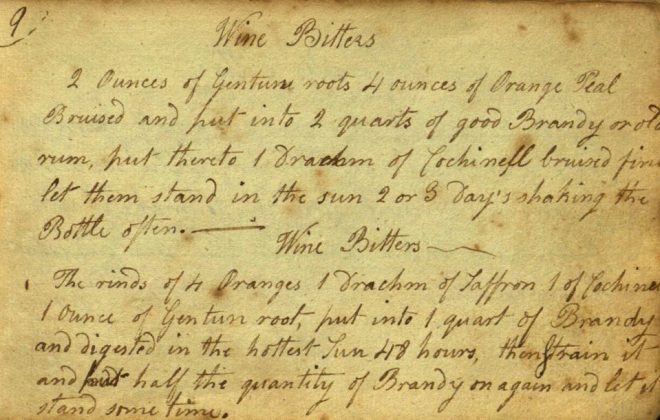 9.
Wine Bitters
2 Ounces of Gentun roots 4 ounces of Orange Peal
Bruised and put into 2 quarts of good Brandy or old
rum, put thereto 1 Drachm of Cochinell bruised fine
let them stand in the sun 2 or 3 Day's shaking the
Bottle often.
Wine Bitters
The rinds of 4 Oranges 1 Drachm of Saffron 1 of Cochine
1 Ounce of Gentun root, put into 1 quart of Brandy
and digested in the hottest Sun 48 hours, then Strain it
and put half the quantity of Brandy on again and let it
stand some time.